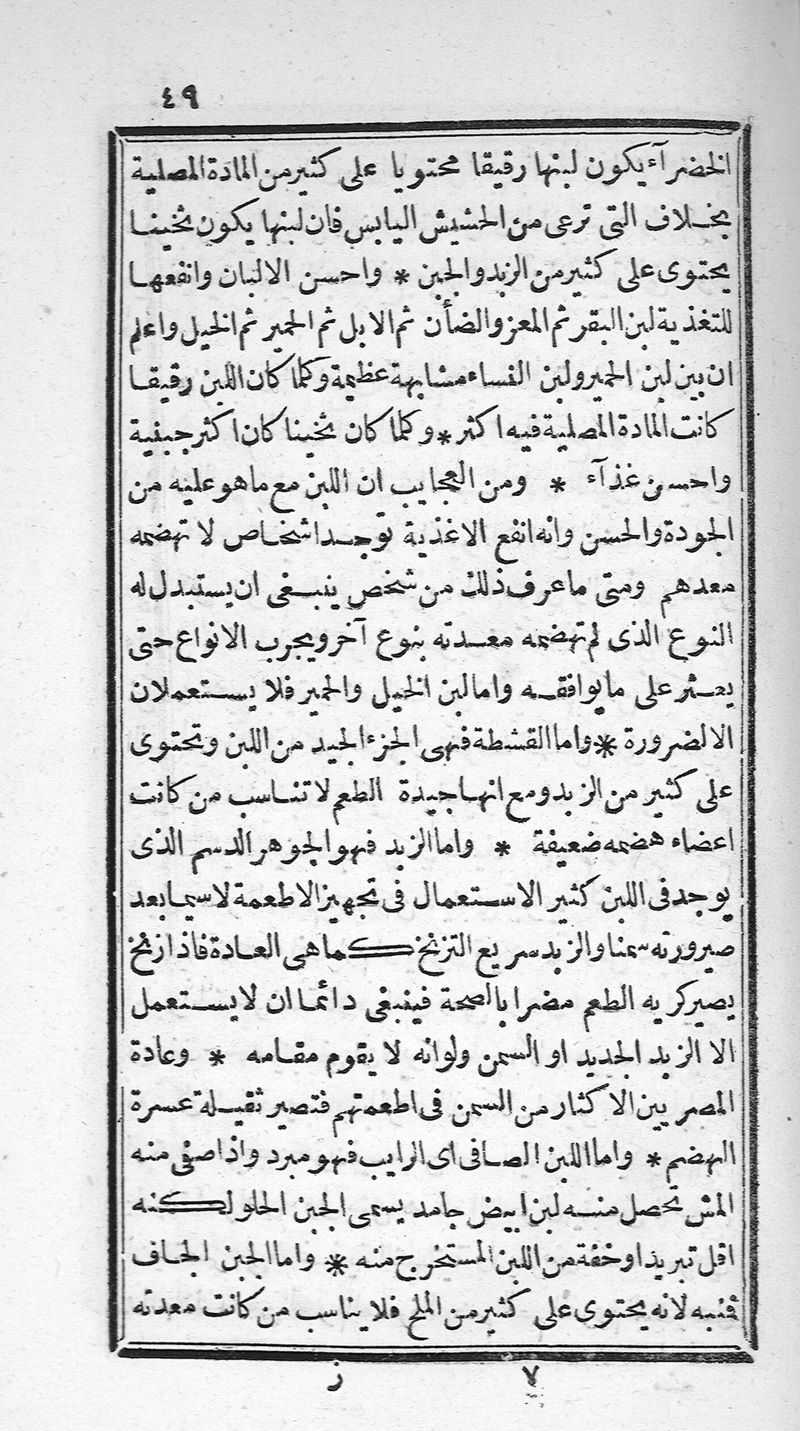 ٤٩
الخضرآء يكون لبنها رقيقا محتويا على كثير من المادة المصلية
بخلاف التى ترعى من الحشيش اليابس فان لبنها يكون ثخينا
يحتوى على كثير من الزبد والجبن * واحسن الالبان وانفعها
للتغذية لبن البقر ثم المعز والضأن ثم الابل ثم الحمير ثم الخيل واعلم
ان بين لبن الحمير ولبن النساء مشابهة عظيمة وكلما كان اللبن رقيقا
كانت المادة المصلية فيه اكثر * وكلما كان ثخينا كان اكثر جبنية
واحسن غذآء * ومن العجايب ان اللبن مع ما هو عليه من
الجودة والحسن وانه انفع الاغذية توجد اشخاص لا تهضمه
معدهم ومتى ما عرف ذلك من شخص ينبغى ان يستبدل له
النوع الذى لم تهضمه معدته بنوع آخر ويجرب الانواع حتى
يعثر على ما يوافقه واما لبن الخيل والحمير فلا يستعملان
الا لضرورة * واما القشطة فهى الجزء الجيد من اللبن وتحتوى
على كثير من الزبد ومع انها جيدة الطعم لا تناسب من كانت
اعضاء هضمه ضعيفة * واما الزبد فهو الجوهر الدسم الذى
يوجد فى اللبن كثير الاستعمال فى تجهيز الاطعمة لاسيما بعد
صيرورته سمنا والزبد سريع التزنخ كما هى العادة فاذا زنخ
يصير كريه الطعم مضرا بالصحة فينبغى دائما ان لا يستعمل
الا الزبد الجديد او السمن ولو انه لا يقوم مقامه * وعادة
المصريين الاكثار من السمن فى اطعمتهم فتصير ثقيلة عسرة
الهضم * واما اللبن الصافى اى الرايب فهو مبرد واذا صفى منه
المش تحصل منه لبن ابيض جامد يسمى الجبن الحلو لكنه
اقل تبريذا وخفة من اللبن المستخرج منه * واما الجبن الجاف
فنبه لانه يحتوى على كثير من الملح فلا يناسب من كانت معدته
٧ ز